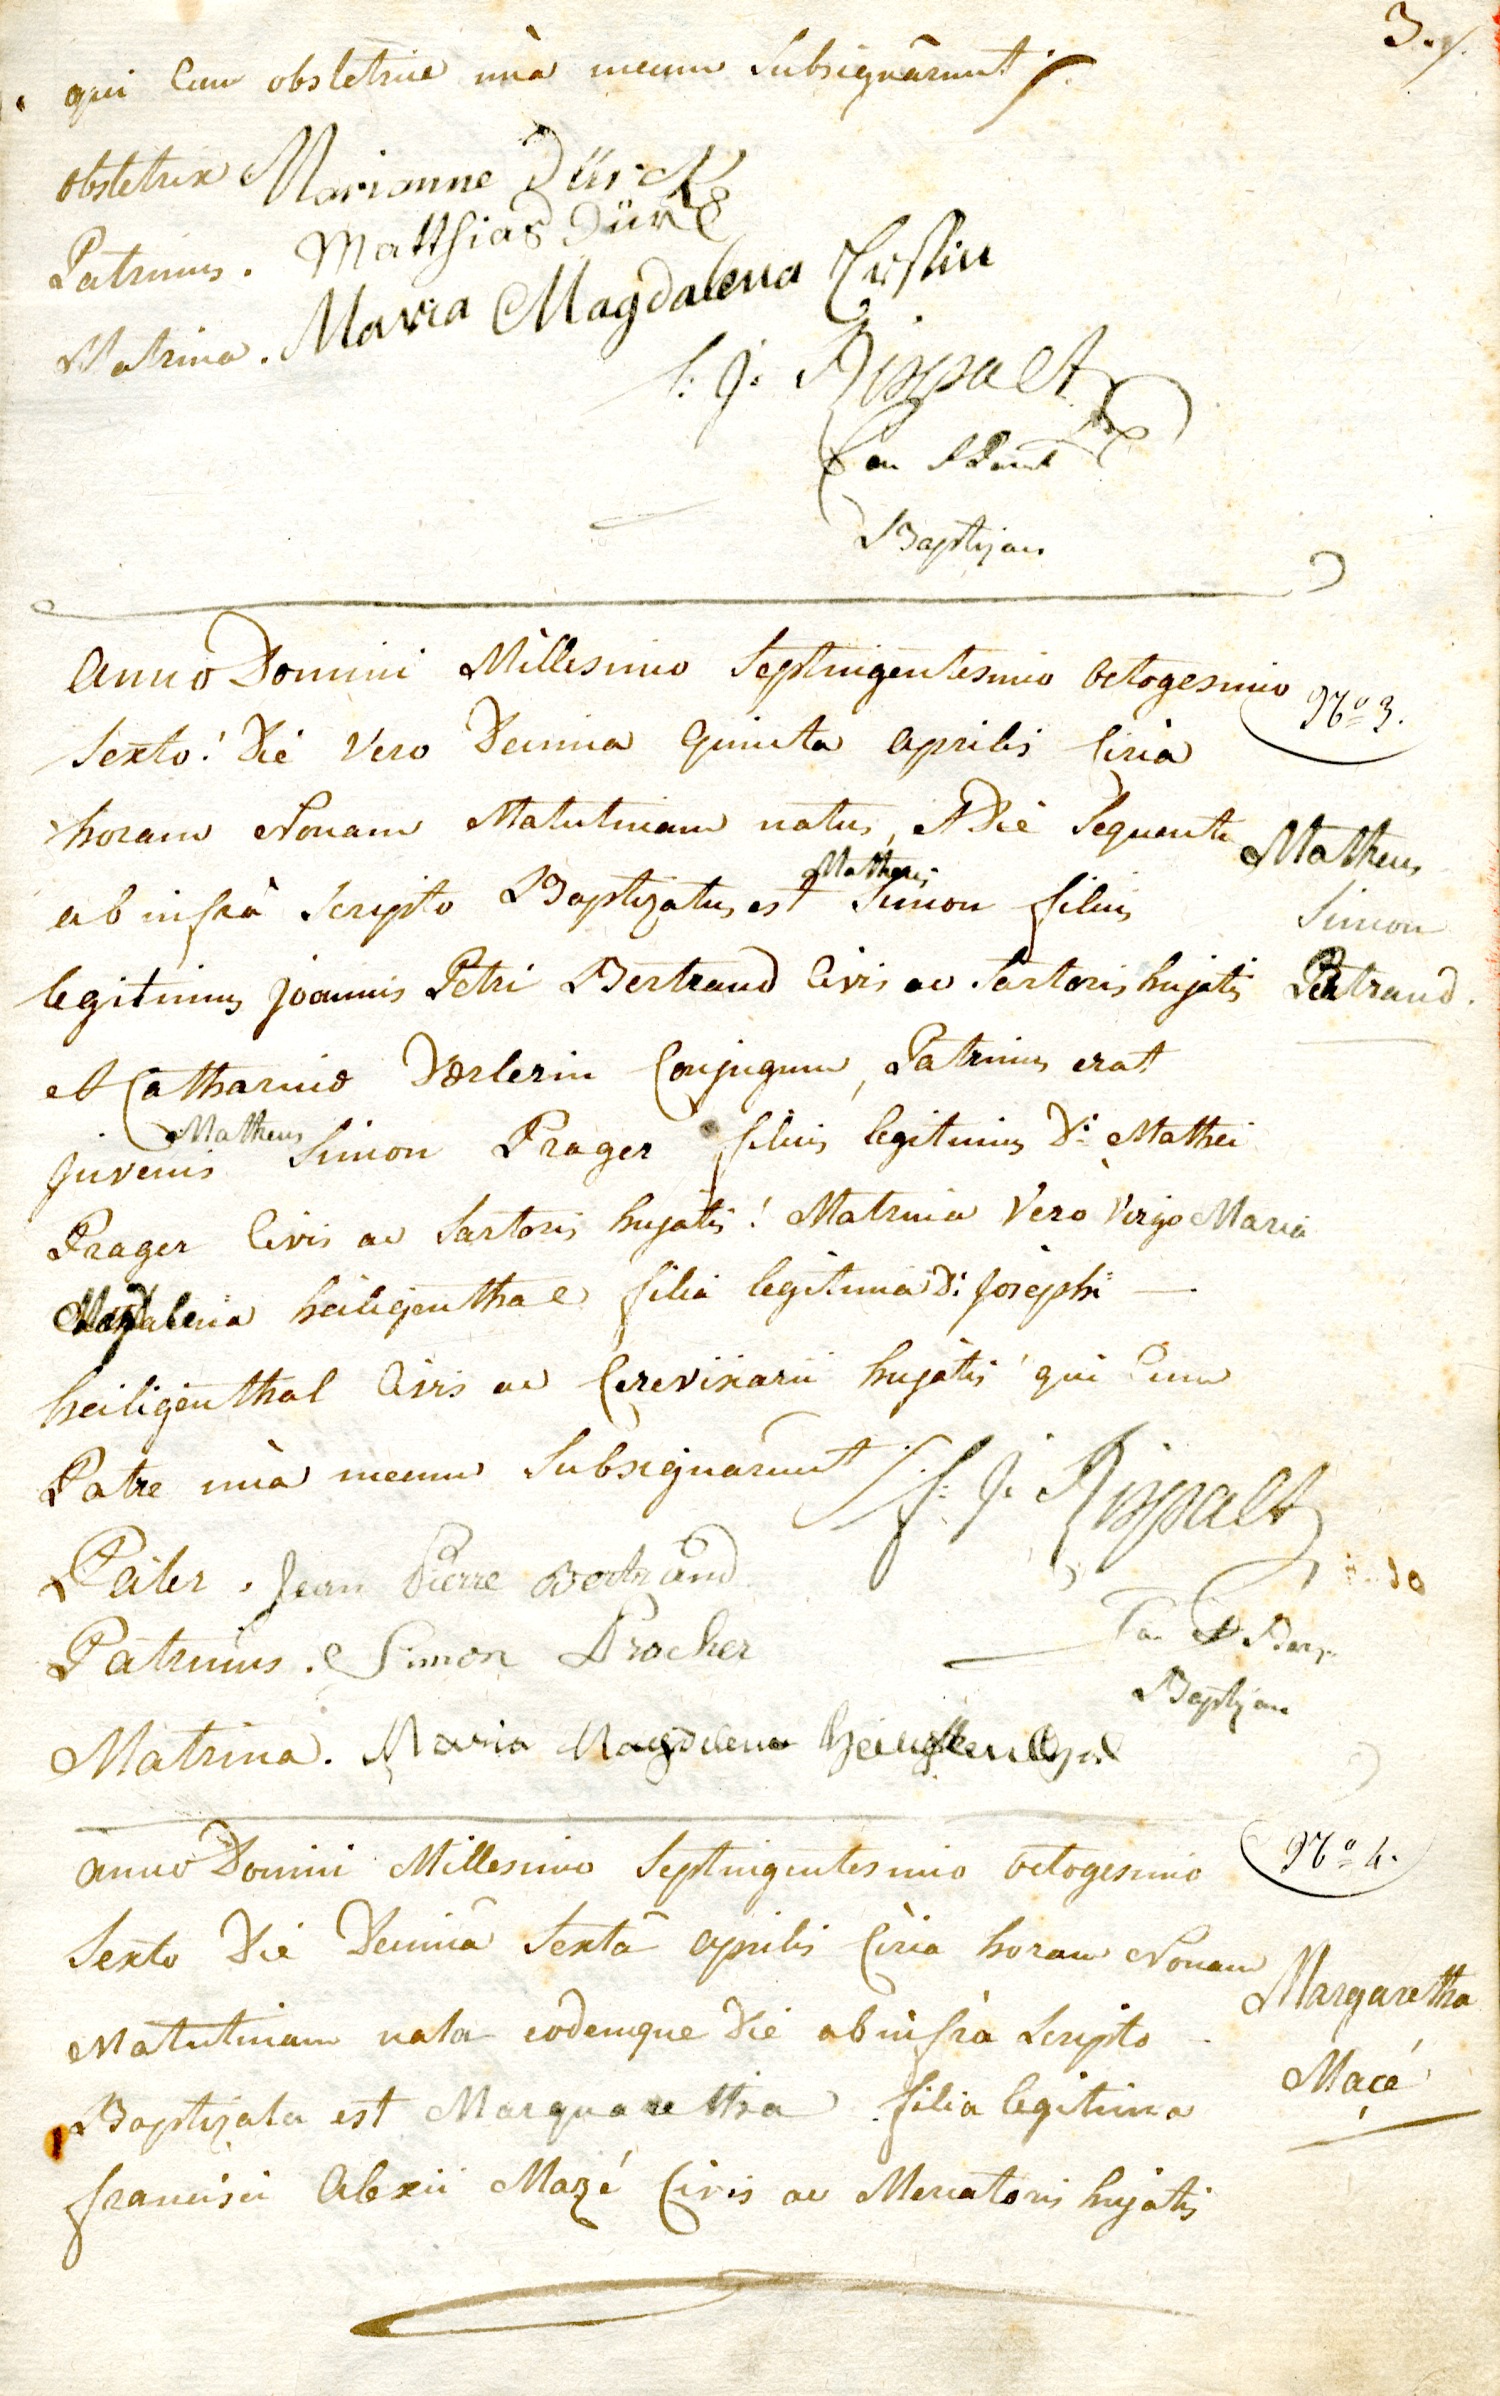 3./.
qui Cum obstetrice unà mecum Subsignârunt ./.
obstetrix Marianne Dürck
Patrinus. Matthias Dürck
Matrina. Maria Magdalena Erstin
f: J: Rispalt
Can
Baptizans
Anno Domini Millesimo Septingentesimo octogesimo
Nō 3.
Sexto! Die Vero Decima quinta aprilis Circà
horam Nonam Matutinam natus, et Die Sequenti
Matheus
Matheus
ab infrà scripto Baptizatus est Simon filius
Simon
legitimus joannis Petri Bertrand Civis ac Sartoris hujatis
Bertrand.
et Catharinæ Dorlerin Conjugum, Patrinus erat
Matheus
juvenis Simon Prager filius legitimus D: Mathei
Prager Civis ac Sartoris hujatis! Matrina Vero Virgo Maria
Magdalena heiligenthal filia legitima D: josephi —
heiligenthal Civis ac Cerevisiarii hujatis qui Cum
Patre unà mecum Subsignarunt ./. f: J: Rispalt
Pater. Jean Pierre Bertrand
Can
Patrinus. Simon Pracher
Baptizans
Matrina. Maria Magdalena Heiligenthal
anno Domini Millesimo Septingentesimo octogesimo
Nō 4.
Sexto Die Decimâ Sextâ aprilis Circà horam Nonam
Margaretha
Matutinam nata eodemque Die ab infrà scripto
Macé
Baptizata est Marguaretha filia legitima
francisci Alexii Mazé Civis ac Mercatoris hujatis